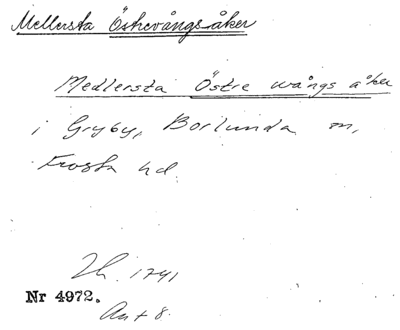 Mellersta Östrevångsåker
Medlersta Östre wångs åker
i Gryby, Borlunda sn,
Frosta hd.
Lh. 1741
Nr 4972.
Akt 8.